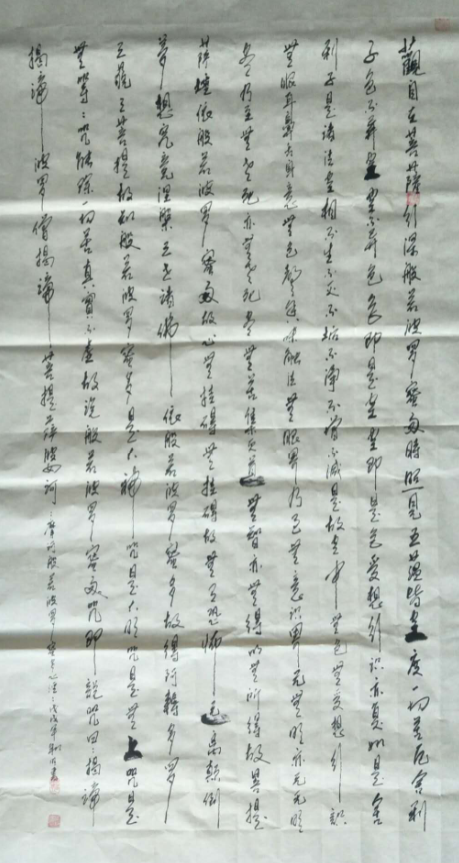 观自在菩萨行深般若波罗蜜多時照見五蕴皆空度一切苦厄舍利
子色不异空空不异色色即是空空即是色受想行识亦复如是舍
利子是诸法空相不生不灭不垢不淨不增不减是故空中無色無受想行识
無眼耳鼻舌身意無色声香味触法無眼界乃至無意识界无無明亦无无明
尽乃至無老死亦無老死尽無苦集灭道無智亦無得以無所得故菩提
萨埵依般若波罗蜜多故心無挂碍無挂碍故無有恐怖远离颠倒
夢想究竟涅槃三世诸佛依般若波罗蜜多故得阿耨多罗
三藐三菩提故知般若波罗蜜多是大神咒是大明咒是無上咒是
無等等咒能除一切苦真實不虚故说般若波罗蜜多咒即说咒曰揭谛
揭谛波罗僧揭谛菩提萨婆诃摩诃般若波罗蜜多心经戊戌年